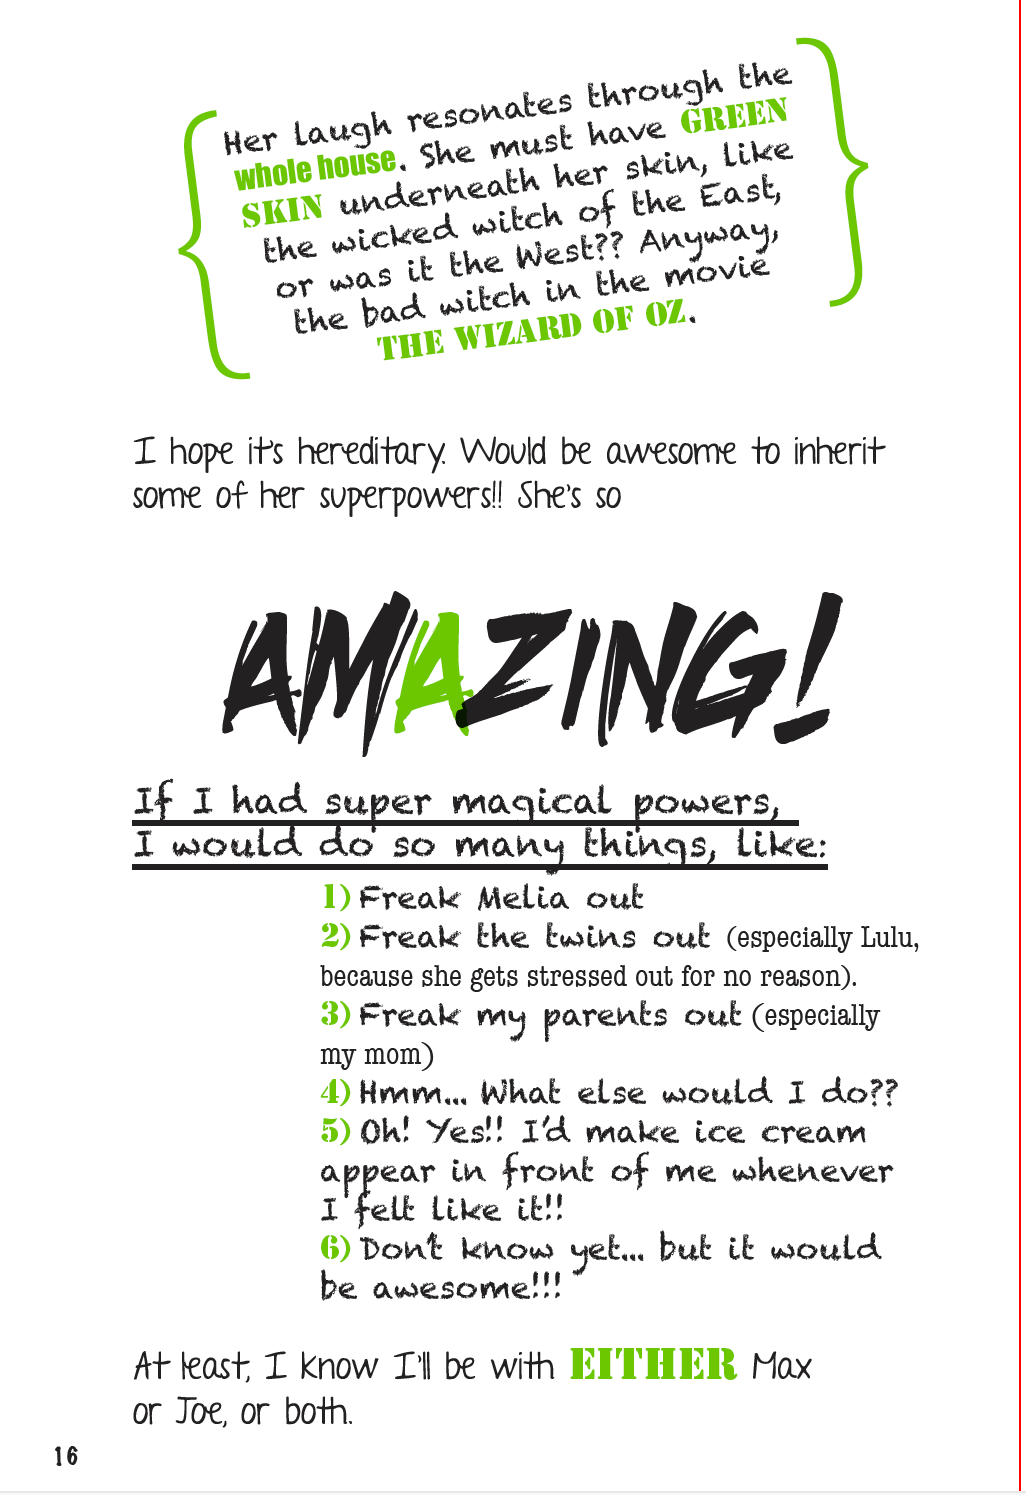 Her laugh resonates through the
whole house. She must have GREEN
SKIN underneath her skin, like
the wicked witch of the East,
or was it the West?? Anyway,
the bad witch in the movie
THE WIZARD OF OZ.
I hope it's hereditary. Would be awesome to inherit
some of her superpowers!! She's so
AMAZING!
If I had super magical powers,
I would do so many things, like:
1) Freak Melia out
2) Freak the twins out (especially Lulu,
because she gets stressed out for no reason).
3) Freak my parents out (especially
my mom)
4) Hmm... What else would I do??
5) Oh! Yes!! I'd make ice cream
appear in front of me whenever
I felt like it!!
6) Don't know yet... but it would
be awesome!!!
At least, I know I'll be with EITHER Max
or Joe, or both.
16